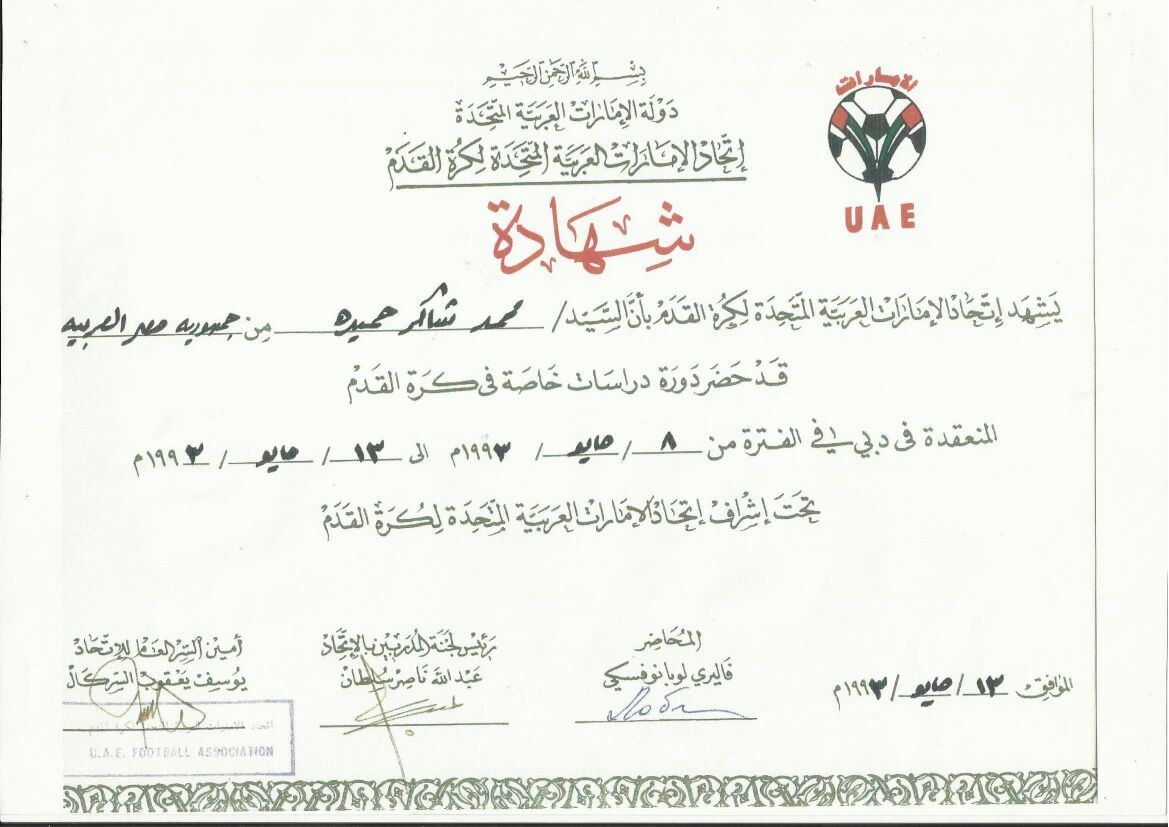 بسم الله الرحمن الرحيم
دولة الإمارات العربية المتحدة
إتحاد الإمارات العربية المتحدة لكرة القدم
شهادة
الإمارات
UAE
يشهد إتحاد الإمارات العربية المتحدة لكرة القدم بأن السيد/ محمد شاكر حميده من جمهورية مصر العربيه
قد حضر دورة دراسات خاصة في كرة القدم
المنعقدة في دبي في الفترة من ٨ / مايو / ١٩٩٣م الى ١٣ / مايو / ١٩٩٣م
تحت إشراف إتحاد الإمارات العربية المتحدة لكرة القدم
الموافق ١٣ / مايو / ١٩٩٣م
المحاضر
فاليري لوبانوفسكي
رئيس لجنة المدربين بالإتحاد
عبد الله ناصر سلطان
أمين السر العام للإتحاد
يوسف يعقوب السركال
اتحاد الامارات العربية المتحدة لكرة القدم
U.A.E. FOOTBALL ASSOCIATION